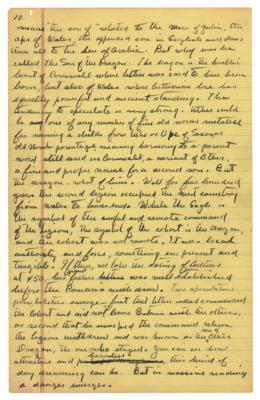 10
means the son of related to the Mac of Gaelic, the
aps of Wales, the appended son in English and dows
them all to the ben of Arabic. But why was he
called The Son of the Dragon. The dragon is the
beast of Cornwall where Uther was said to have been
born, but also of Wales where Arthurian lore has
equally powerful and ancient standing. The
tendency to speculate is very strong. Uther could
be one of any number of fine old words
for naming a child from
old Norse parentage, meaning harmony to a parent
word still used in Cornwall, a variant of Other,
a fine and proper name for a second son. But
the dragon. What of him. Well for five hundred
years the second legion occupied the west country
from Wales to Lands end. While the Eagle is
the symbol of the awful and remote command
of the legion, the symbol of the cohort is the dragon,
and the cohort was not remote. It was local
authority and force, something ever present and
tangible. If thus, we take the dating of Arthur
at 450, his father was well established
before the Romans withdrew. Two speculative
possibilities emerge, first that Uther indeed commanded
the cohort and did not leave Britain with the others,
or second that he usurped the command when
the legion withdrew and was known as the Other
Dragon, the one who stayed. You can see how
attractive and harmless this kind of
day dreaming can be. But in massive reading
a danger emerges.